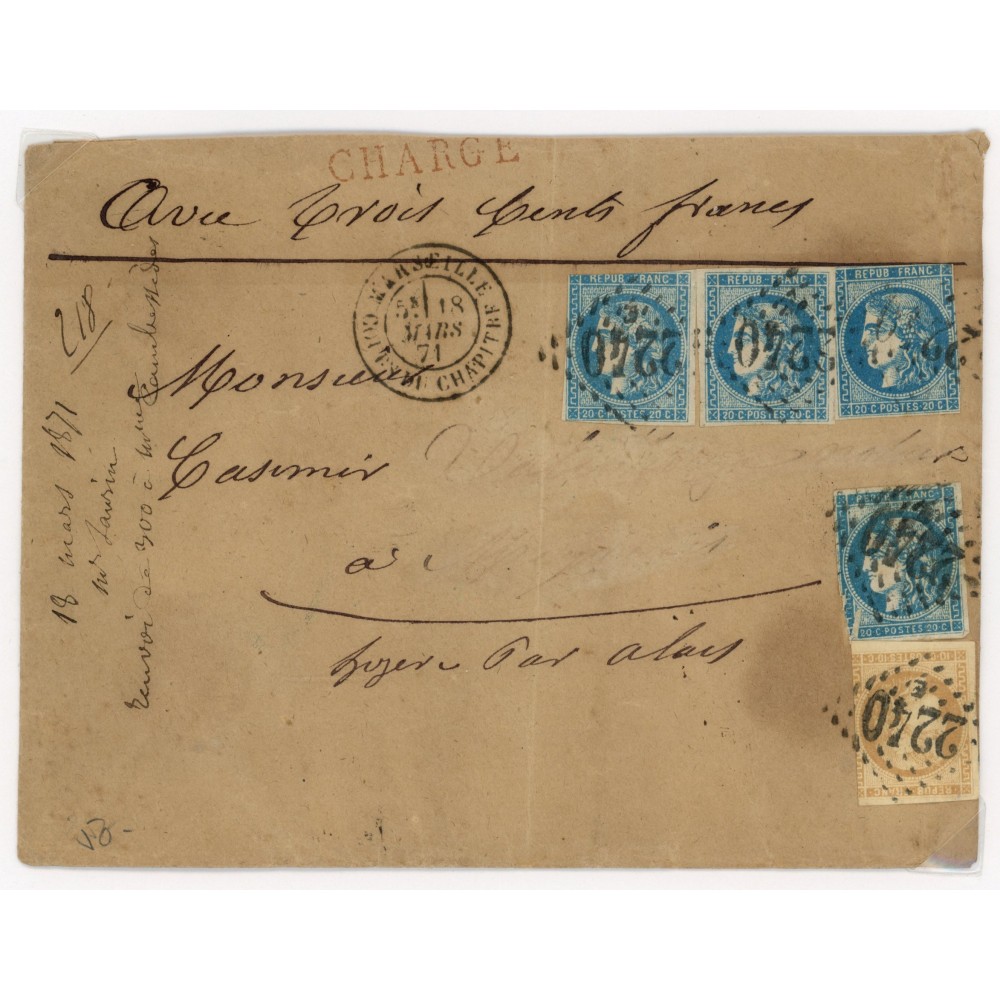 CHARGE
Avec trois Cents francs
MARSEILLE
COURS DU CHAPITRE
18
MARS
71
REPUB FRANC
20 C POSTES 20 C
2240
REPUB FRANC
20 C POSTES 20 C
2240
REPUB FRANC
20 C POSTES 20 C
22
Monsieur
Casimir
à
REPUB FRANC
20 C POSTES 20 C
2240
Lozère Par alais
10 C POSTES 10 C
REPUB FRANC
2240
18 mars 1871
Mr Laurin
Renvoi de 300